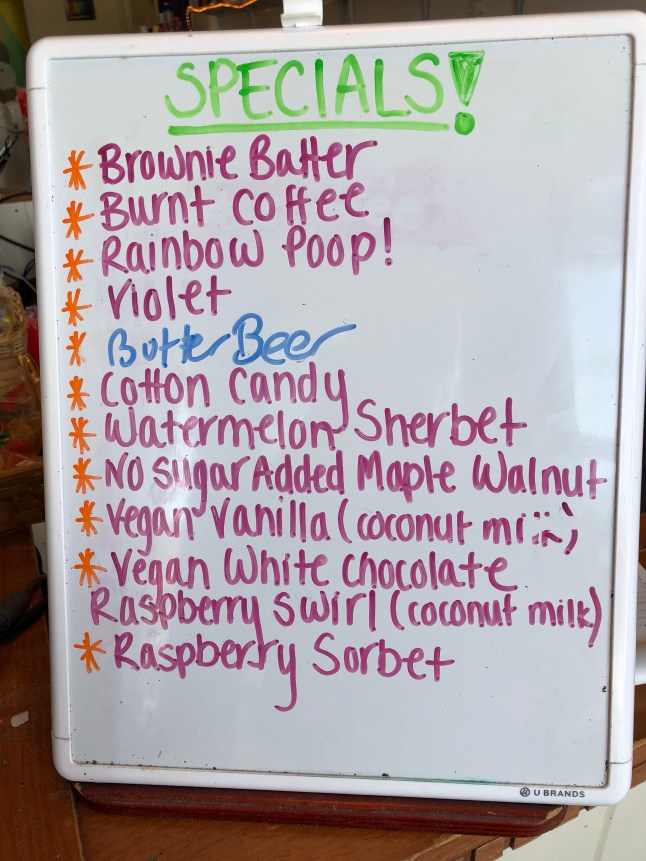 SPECIALS!
* Brownie Batter
* Burnt Coffee
* Rainbow Poop!
* Violet
* Butter Beer
* Cotton Candy
* Watermelon Sherbet
* No Sugar Added Maple Walnut
* Vegan Vanilla (coconut
* Vegan White Chocolate
Raspberry Swirl (coconut milk)
* Raspberry Sorbet
U BRANDS